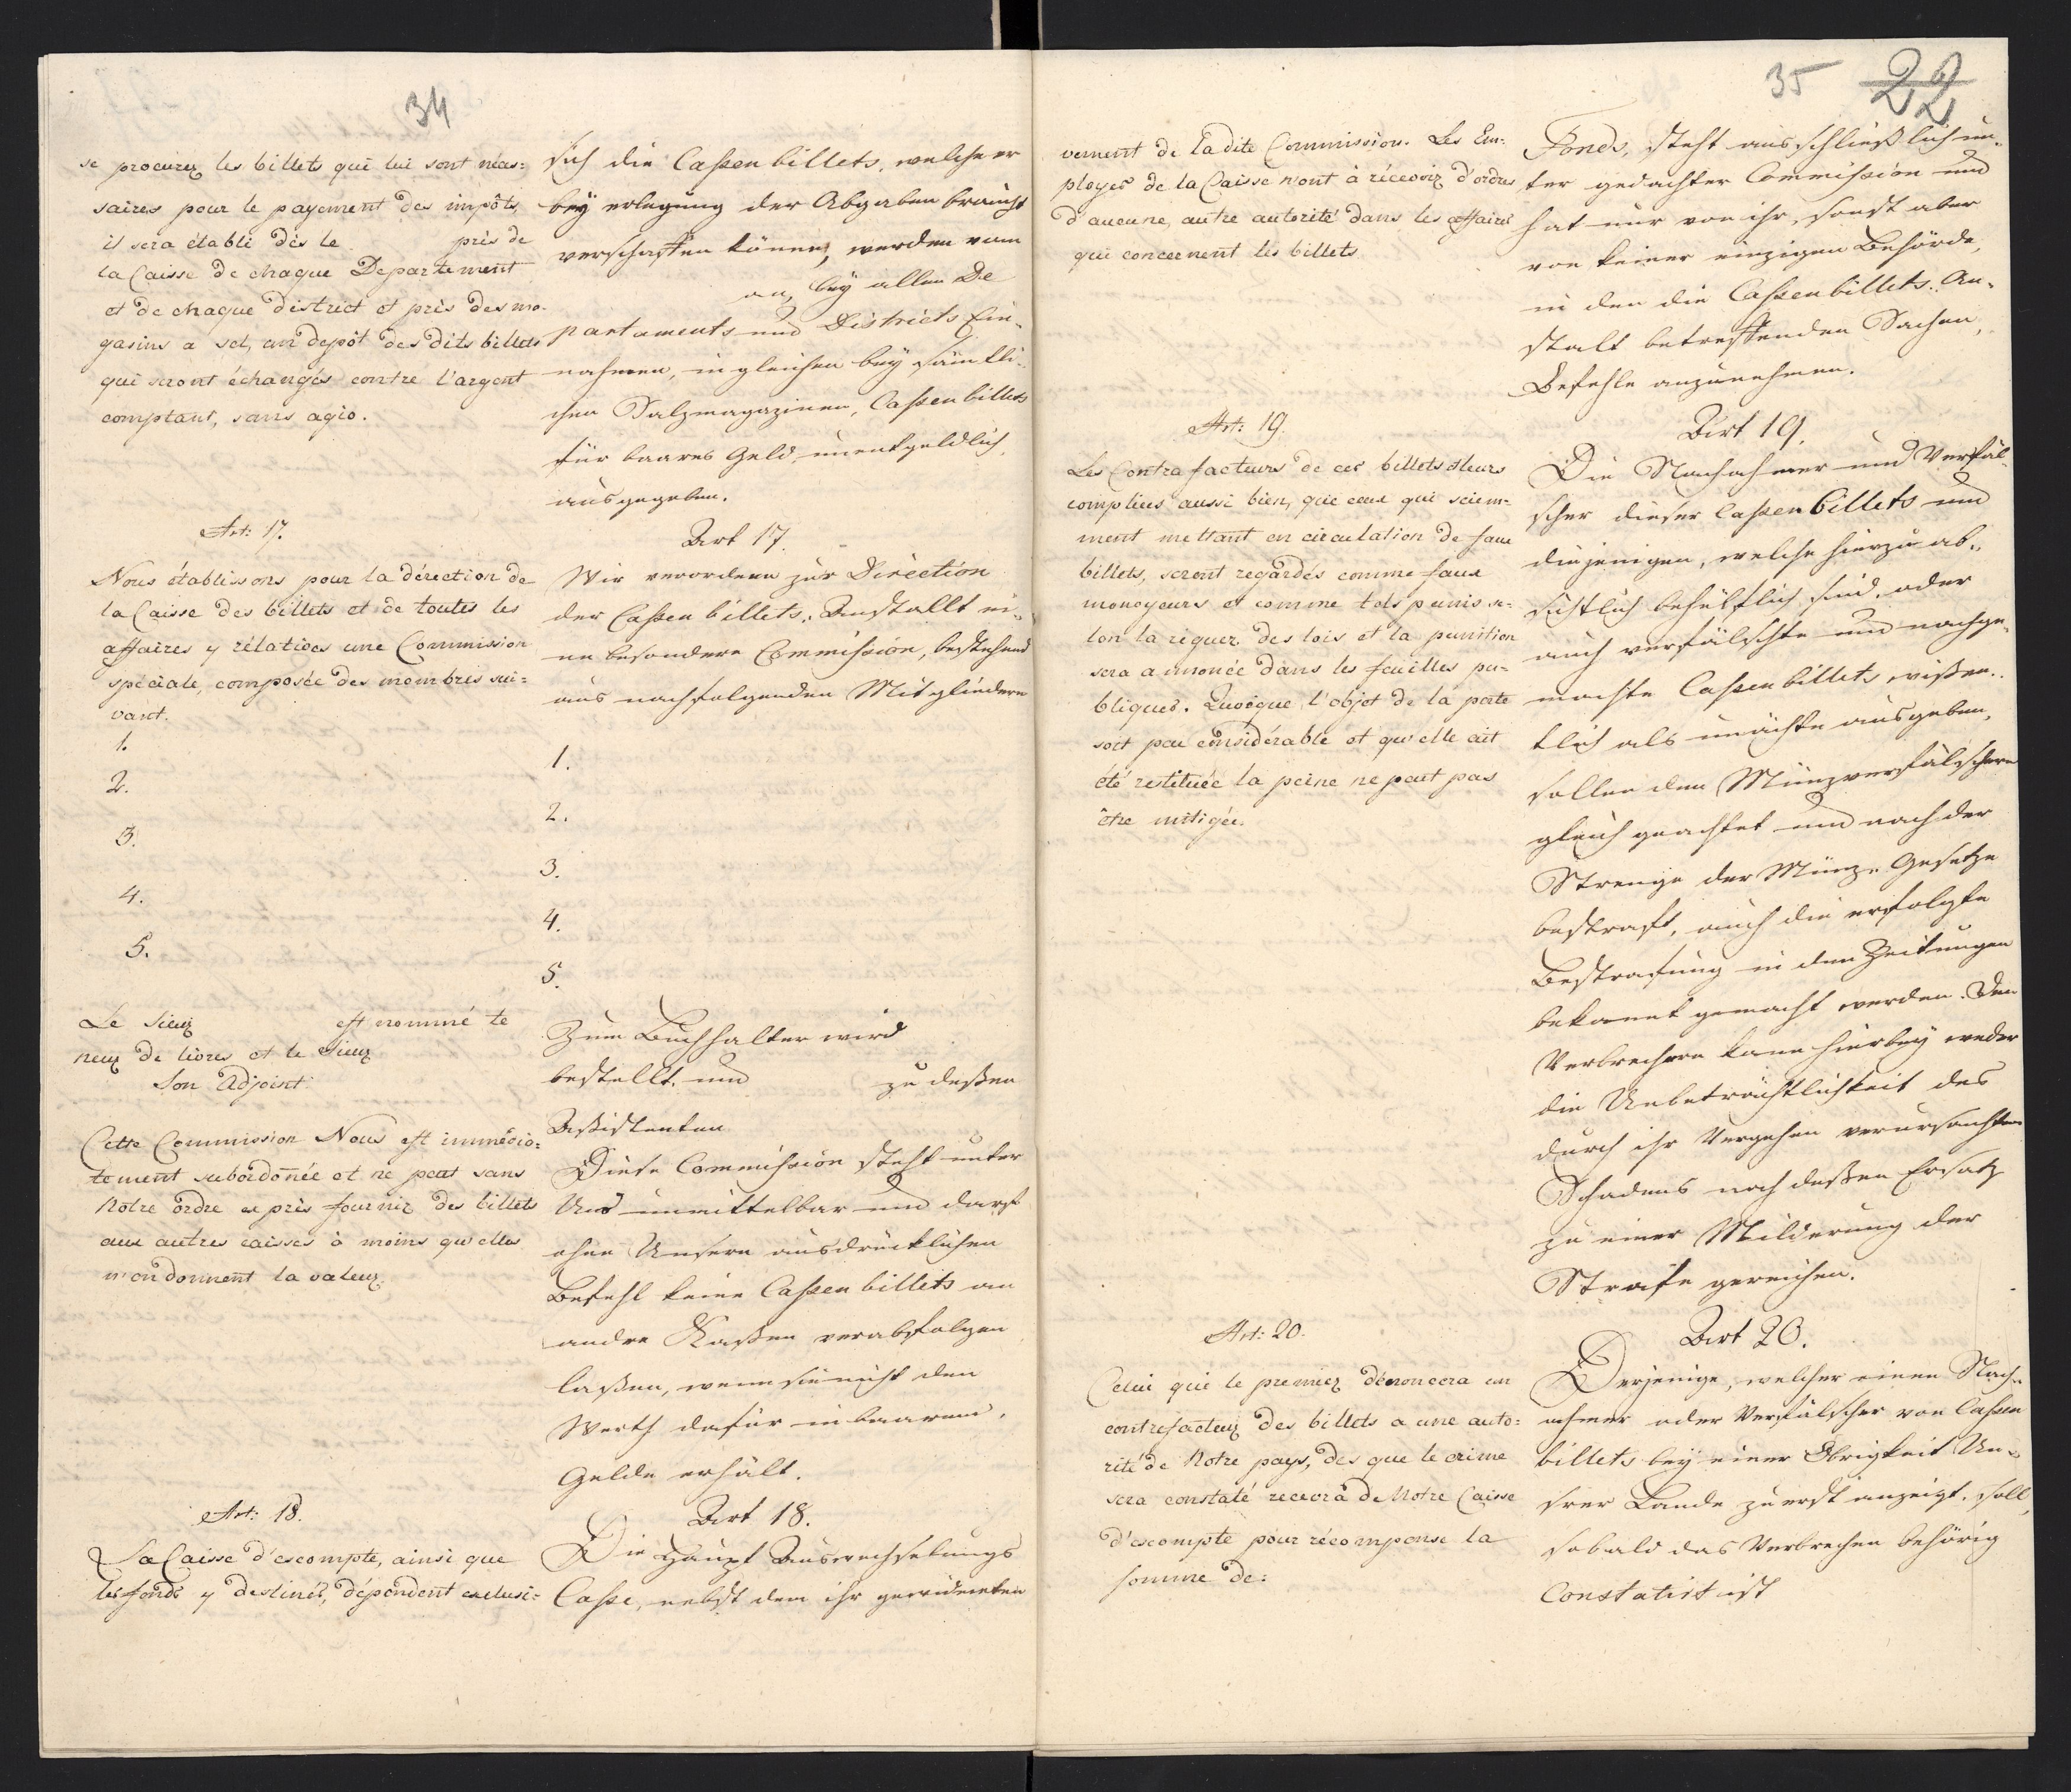 34
se procurez les billets qui lui sont néas:
saires pour le payement des impôts
il sera établi dès le près de
la Caisse de chaque Departement
et de chaque district et près des ma-
gasins a sel, un depôt des dits billets
qui seront échangés contre l'argent
comptant, sans agio.
Art: 17.
Nous établissons pour la dérection de
la Caisse des billets et de toutes les
affaires y rélatives une Commission
spéciale, composée des membres sui=
vant.
1.
2.
3.
4.
5.
Le Sieuz est nommé te
neuz de livres et le Sieuz
Son Adjoint
Cette Commission Nous est immédia:
tement subordonnée et ne peut sans
Notre ordre exprès fournir des billets
aux autres caisses à moins qu'elles
n'en donnent la valeuz.
Art: 18.
La Caisse d'escompte, ainsi que
les fonds y destinés, dépendent exclusi=
sich die Caßen billets, welche er
bey erlegung der Abgaben braucht
verschaffen könne, werden vom
an, bey allen De
partaments und Districts Ein-
nahmen, ingleichen bey sämtli-
chen Salzmagazinen, Caßen billets
für baares Geld, unentgeldlich,
ausgegeben.
Art 17.
Wir verordnen zur Direction
der Caßen billets, Anstallt ei-
ne besondere Commission, bestehend
aus nachfolgenden Mitgliedern
1.
2.
3.
4.
5.
Zum Buchhalter wird
bestellt, und zu deßen
Aßistenten
Diese Commission steht unter
Uns unmittelbar und darf
ohne Unsern ausdrücklichen
Befehl keine Caßen billets an
andre Kaßen verabfolgen
laßen, wenn sie nicht den
Werth dafür in baarem,
Gelde erhält.
Art 18.
Die Haupt Auswechselungs
Caße, nebst dem ihr gewidmeten
35 22
vement de la dite Commission. Les Em:
ployés de la Caisse n'ont à récevoir d'ordres
d'aucune, autre autorité dans les affaires
qui concernent les billets
Art: 19.
Les Contrafacteurs de ces billets et leurs
complices aussi bien, que ceux qui sciem-
ment mettant en circulation de faux
billets, seront regardés comme faux
monoyeurs et comme tels punis se-
lon la riguer des lois et la punition
sera annoncée dans les feuilles pu-
bliques. Quoique l'objet de la perte
soit peu considérable et qu'elle ait
été restituée la peine ne peut pas
être mitigée.
Art: 20.
Celui qui le premiez dénoncera un
contrefacteuz des billets a une auto:
rité de Notre pays, des que le crime
sera constaté recevra de Notre Caisse
d'escompte pour récompense la
somme de:
Fonds, steht ausschließlich un-
ter gedachter Commission und
hat nur von ihr, sonst aber
von keiner einzigen Behörde,
in den die Caßenbillets-An-
stalt betreffenden Sachen,
Befehle anzunehmen.
Art 19.
Die Nachahmer und Verfäl-
scher dieser Caßen billets und
diejenigen, welche hierzu ab-
sichtlich behülflich sind, oder
auch verfälschte und nachge-
machte Caßen billets wißen-
tlich als unächte ausgeben,
sollen den Münzverfälschern
gleich geachtet und nach der
Strenge der Münz-Gesetze
bestraft, auch die erfolgte
Bestrafung in den Zeitungen
bekannt gemacht werden. Den
Verbrechern kann hierbey weder
die Unbeträchtlichkeit des
durch ihr Vergehen verursachten
Schadens noch deßen Ersatz
zu einer Milderung der
Strafe gereichen.
Art 20.
Derjenige, welcher einen Nach-
ahmer oder Verfälscher von Caßen
billets bey einer Obrigkeit Un-
srer Lande zuerst anzeigt, soll,
sobald das Verbrechen behörig
Constatirt ist